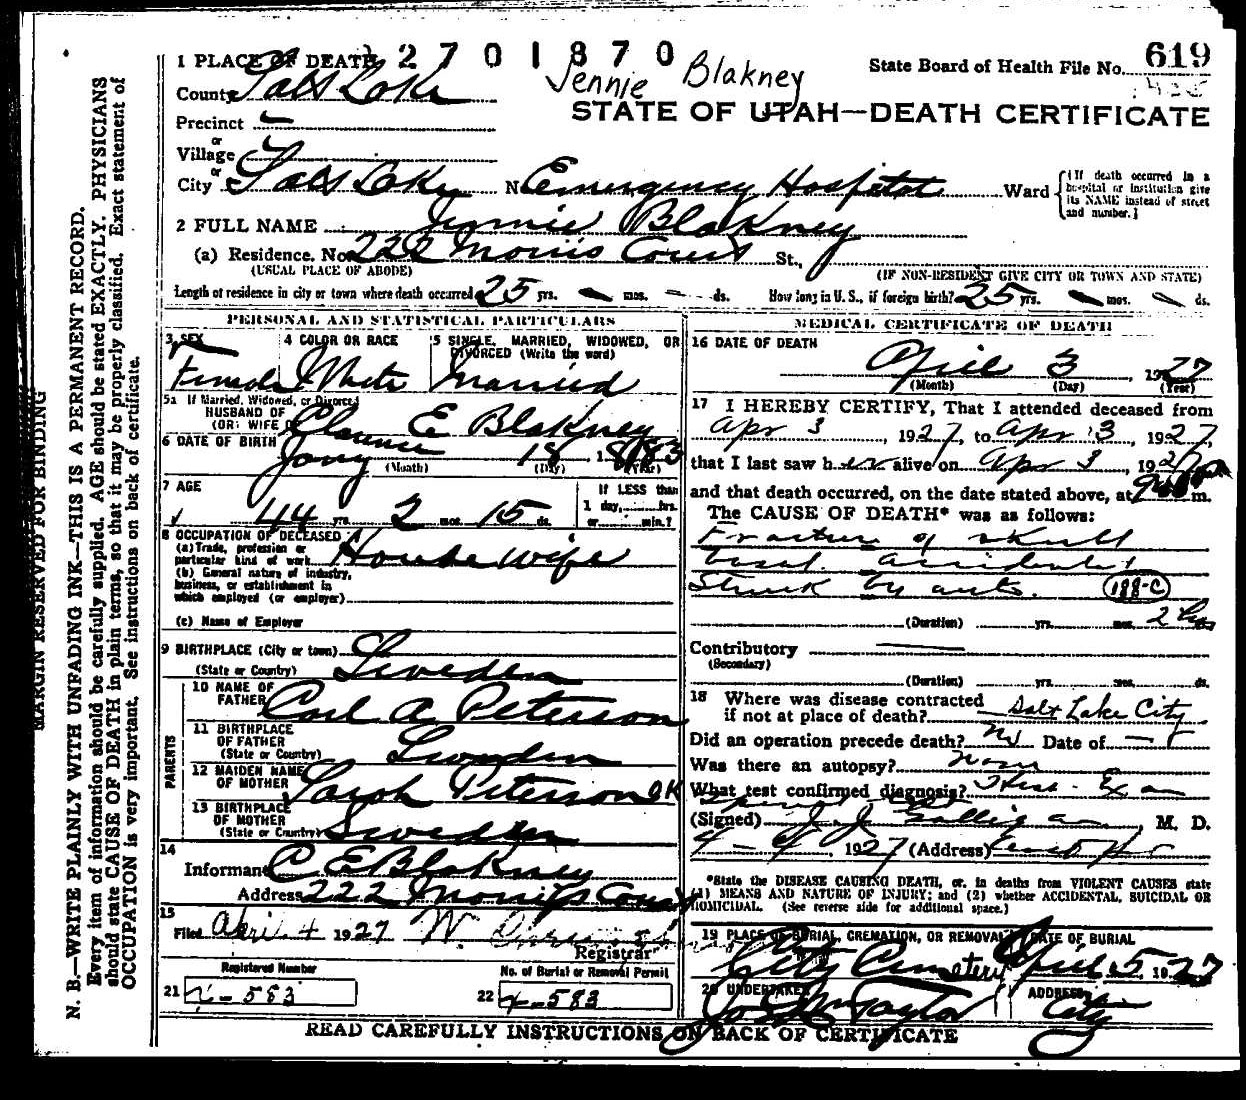 2 7 0 1 8 7 0
Jennie Blakney
State Board of Health File No. 619
1 PLACE OF DEATH
County Salt Lake
STATE OF UTAH—DEATH CERTIFICATE
Precinct
or
Village
or
City Salt Lake No. Emergency Hospital Ward
{If death occurred in a
hospital or institution give
its NAME instead of street
and number.}
2 FULL NAME Jennie Blakney
(a) Residence. No. 222 Morris Court St.,
(USUAL PLACE OF ABODE) (IF NON-RESIDENT GIVE CITY OR TOWN AND STATE)
Length of residence in city or town where death occurred 25 yrs. mos. ds. How long in U. S., if foreign birth? 25 yrs. mos. ds.
PERSONAL AND STATISTICAL PARTICULARS
3 SEX 4 COLOR OR RACE 5 SINGLE, MARRIED, WIDOWED, OR
DIVORCED (Write the word)
Female White Married
5a If Married, Widowed, or Divorced
HUSBAND OF
(OR) WIFE OF Clarence E Blakney
6 DATE OF BIRTH Jany 18 1883
(Month) (Day) (Year)
7 AGE If LESS than
1 day, hrs.
44 yrs. 2 mos. 15 ds. or min.?
8 OCCUPATION OF DECEASED
(a) Trade, profession or
particular kind of work House wife
(b) General nature of industry,
business, or establishment in
which employed (or employer)
(c) Name of Employer
9 BIRTHPLACE (City or town)
(State or Country) Sweden
PARENTS
10 NAME OF
FATHER Carl A Peterson
11 BIRTHPLACE
OF FATHER
(State or Country) Sweden
12 MAIDEN NAME
OF MOTHER Sarah Peterson OK
13 BIRTHPLACE
OF MOTHER
(State or Country) Sweden
14
Informant C E Blakney
Address 222 Morris Court
15
Filed April 4 1927 W.
Registrar
Registered Number No. of Burial or Removal Permit
21 583 22 583
MEDICAL CERTIFICATE OF DEATH
16 DATE OF DEATH
April 3, 1927
(Month) (Day) (Year)
17 I HEREBY CERTIFY, That I attended deceased from
Apr 3, 1927, to Apr 3, 1927,
that I last saw her alive on Apr 3, 1927
and that death occurred, on the date stated above, at m.
The CAUSE OF DEATH* was as follows:
Fracture of skull
basal accidental
Struck by auto. 188-C
(Duration) yrs. mos. 2 hrs
Contributory
(Secondary)
(Duration) yrs. mos. ds.
18 Where was disease contracted
if not at place of death? Salt Lake City
Did an operation precede death? No Date of
Was there an autopsy? None
What test confirmed diagnosis?
(Signed) J. J. Galligan, M. D.
4-4, 1927 (Address)
*State the DISEASE CAUSING DEATH, or, in deaths from VIOLENT CAUSES state
(1) MEANS AND NATURE OF INJURY; and (2) whether ACCIDENTAL, SUICIDAL OR
HOMICIDAL. (See reverse side for additional space.)
19 PLACE OF BURIAL, CREMATION, OR REMOVAL DATE OF BURIAL
City Cemetery April 5, 1927
20 UNDERTAKER ADDRESS
Taylor City
READ CAREFULLY INSTRUCTIONS ON BACK OF CERTIFICATE
MARGIN RESERVED FOR BINDING
N. B.—WRITE PLAINLY WITH UNFADING INK—THIS IS A PERMANENT RECORD.
Every item of information should be carefully supplied. AGE should be stated EXACTLY. PHYSICIANS
should state CAUSE OF DEATH in plain terms, so that it may be properly classified. Exact statement of
OCCUPATION is very important. See instructions on back of certificate.